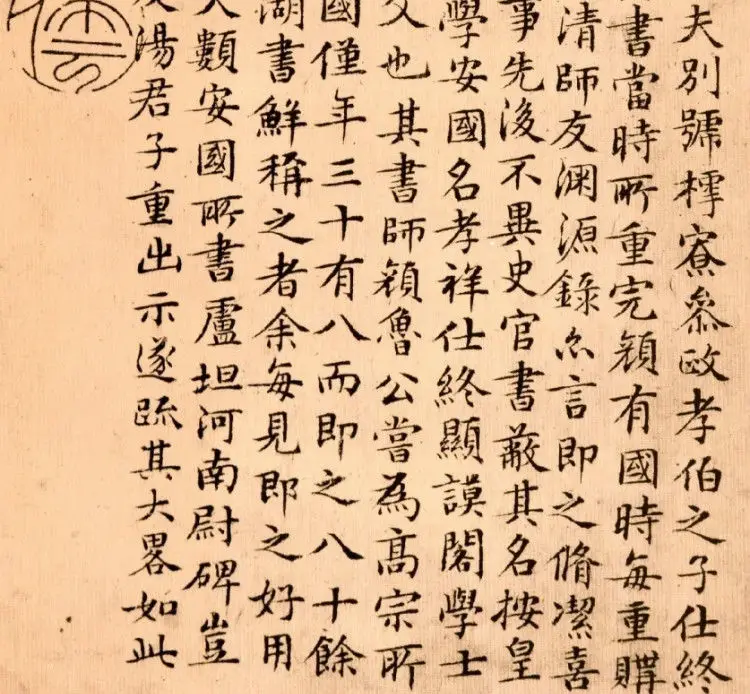 夫別號樗寮叅政孝伯之子仕終
書當時所重完顏有國時每重購
清師友渊源錄亦言即之脩潔喜
事先後不異史官書蔽其名按皇
學安國名孝祥仕終顯謨閣學士
父也其書師顏魯公嘗為高宗所
國僅年三十有八而即之八十餘
湖書鮮稱之者余每見即之好用
大類安國所書盧坦河南尉碑豈
湯君子重出示遂疏其大畧如此